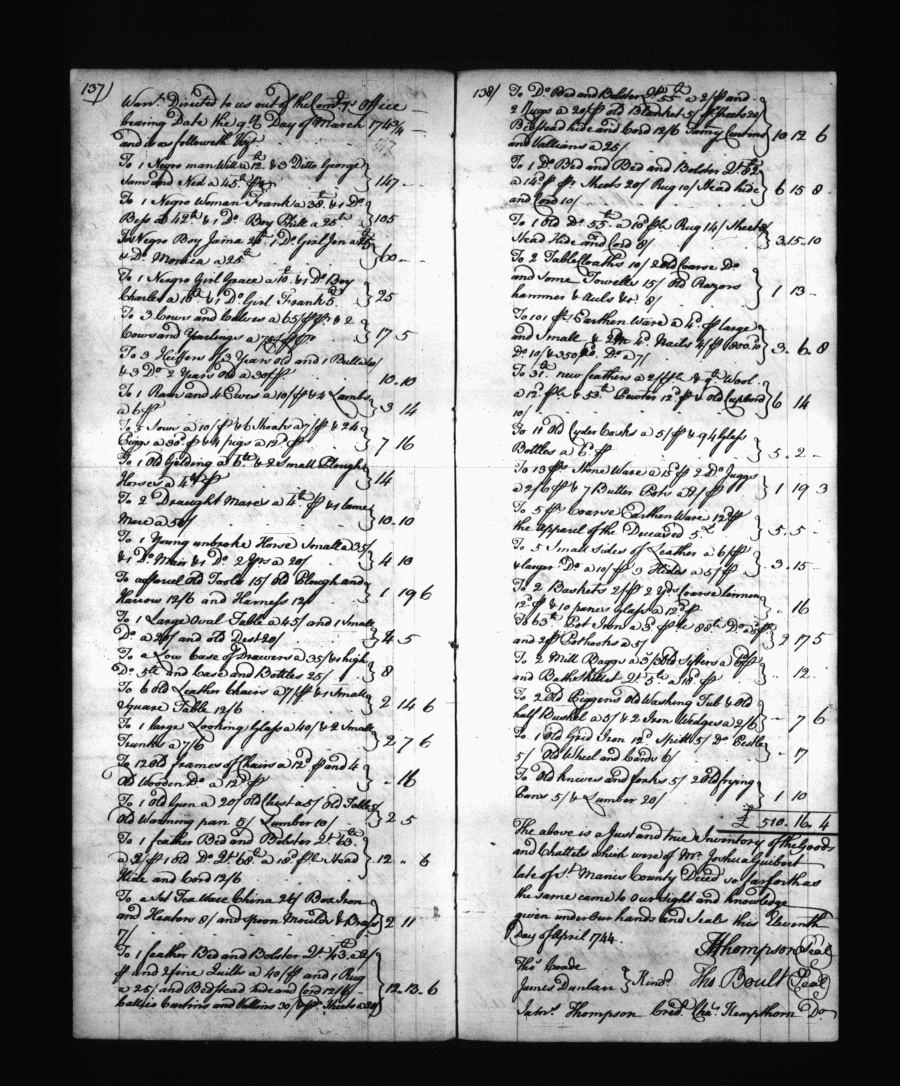 137)
Warrt. Directed to us out of the Comrys Office
bearing Date the 9th Day of March 1743/4
and is as followeth Viz
To 1 Negro man Will a 12. & 3 Ditto George
Sam and Ned a 45th 147 -
To 1 Negro Woman Frank a 38. & 1 Do
Bess at 42th & 1 Do Boy Phill a 25th 105
Negro Boy James 1 Do Girl Jen a
& Do Monica a 25th 60 - -
To 1 Negro Girl Grace a 10. & 1 Do Boy
Charles a 10th & 1 Do Girl Frank 5. 25
To 3 Cows and Calves a 65/ & 2
Cows and Yearlings a 17 5
To 3 Heifers of 3 Years old and 1 Bull a
& 3 Do 2 Years old a 30/ 10 - 10
To 1 Ram and 4 Ewes a 10/ & 4 Lambs
a 6 3 14
To 2 Sows a 10/ & 6 Shoats a 7/ & 24
Piggs a 30d & 4 pigs a 12d 7 16
To 1 Old Gelding a 6th & 2 Small Plough
Horses a 4th 14
To 2 Draught Mares a 4th & 1 lame
Mare a 50/ 10 - 10
To 1 Young unbroke Horse Small a 35/
& 1 Do Mair & 1 Do 2 Yrs a 20/ 4 10
To a parcel old Tools 15/ old Plough and
Harrow 12/6 and Harness 12/ 1 19 6
To 1 Large Oval Table a 45/ and 1 Small
Do a 20/ and old Desk 20/ 4 5
To a Low Case of Drawers a 35/ & 1 high
Do 5th and Case and Bottles 25/ 8
To 6 old Leather Chairs a 7/ & 1 Small
Square Table 12/6 2 14 6
To 1 large Looking Glass a 40/ & 2 Small
Trunks a 7/6 2 7 6
To 12 Old frames of Chairs a 12d and 4
Old Wooden Do a 12d - 16
To 1 Old Gun a 20/ Old Chest a 5/ Old Table 5/
Old Warming pan 5/ Lumber 10/ 2 5
To 1 feather Bed and Bolster Qt. 43.
a 2/ 1 old Do Qt 68th a 18d Head
Hide and Cord 12/6 12 - 6
To a Set Tea Ware China 25/ Box Iron
and Heaters 8/ and Spoon Moulds & Brass
7/ 2 11
To 1 feather Bed and Bolster Qt. 43. a 2/
and 2 fine Quilts a 40/ and 1 Rug
a 25/ and Bedstead hide and Cord 12/6
Callico Curtins and Vallins 30/ & Sheets a 20/ 12 - 13 - 6
138)
To Do Bed and Bolster Qt 55 a 2/ and
2 Rugs a 20/ old Blanket 5/ Sheets 20/
Bedstead hide and Cord 12/6 Curtins
and Vallians a 25/ 10 12 6
To 1 Do Bed and Bed and Bolster Qt. 62
a 14d Sheets 20/ Rug 10/ Head hide
and Cord 10/ 6 15 8
To 1 Old Do 55th a 10d Rug 14/ Sheets
Head Hide and Cord 8/ 3 . 15 - 10
To 2 Tablecloaths 10/ 2 old Coarse Do
and Some Towells 15/ Old Razors
hammer & Auls &c. 8/ 1 13 -
To 101 Earthen Ware a 4d large
and Small & 2M 4d Nails 4/ 1800. 10
Do 10/ & 3500 Do a 7/ 3 . 6 . 8
To 31. new feathers a 2/ & 9th Wool
a 12d & 53th Pewter 12d & old Cupbord
10/ 6 14
To 11 Old Cyder Casks a 5/ & 94 Glass
Bottles a 6d 5 . 2 -
To 13 Stone Ware a 15d 2 Do Juggs
a 2/6 & 7 Butter Pots a 2/ 1 19 3
To 5 Coarse Earthen Ware 12d
the Apparel of the Deceased 5th 5 . 5 -
To 5 Small sides of Leather a 6/
& larger Do a 10/ 3 Hides a 5/ 3 . 15 -
To 2 Baskets 2/ 2 yds Coarse linnen
12d & 10 panes Glass a 12d - 16
To 63th Pot Iron a 3d 88th Do a
and 2 Pothooks a 5/ 2 17 5
To 2 Mill Baggs a 3/ 3 old Sifters a
and Bathe Skillet Qt 5th a 18d - 12 -
To 2 Old Piggens old Washing Tub & old
half Bushel a 5/ & 2 Iron Wedges a 2/6 - 7 6
To 1 Old Grid Iron 12d Spitt 5/ Do Pestle
5/ Old Wheel and Cards 6/ - 17
To Old knives and forks 5/ 2 Old frying
Pans 5/ & Lumber 20/ 1 10
£ 510 . 16 . 4
The above is a Just and true Inventory of the Goods
and Chattels which were of Mr. Joshua Guibert
late of St Maries County Deced so far forth as
the same came to our sight and knowledge
given under our hands and Seals this Eleventh
Day of April 1744.
Thompson (Seal)
Thos Coade
James Dunlan } Kind. Tho Boult (Seal)
Jam. Thompson Cred. Cha. Kempthorn Do